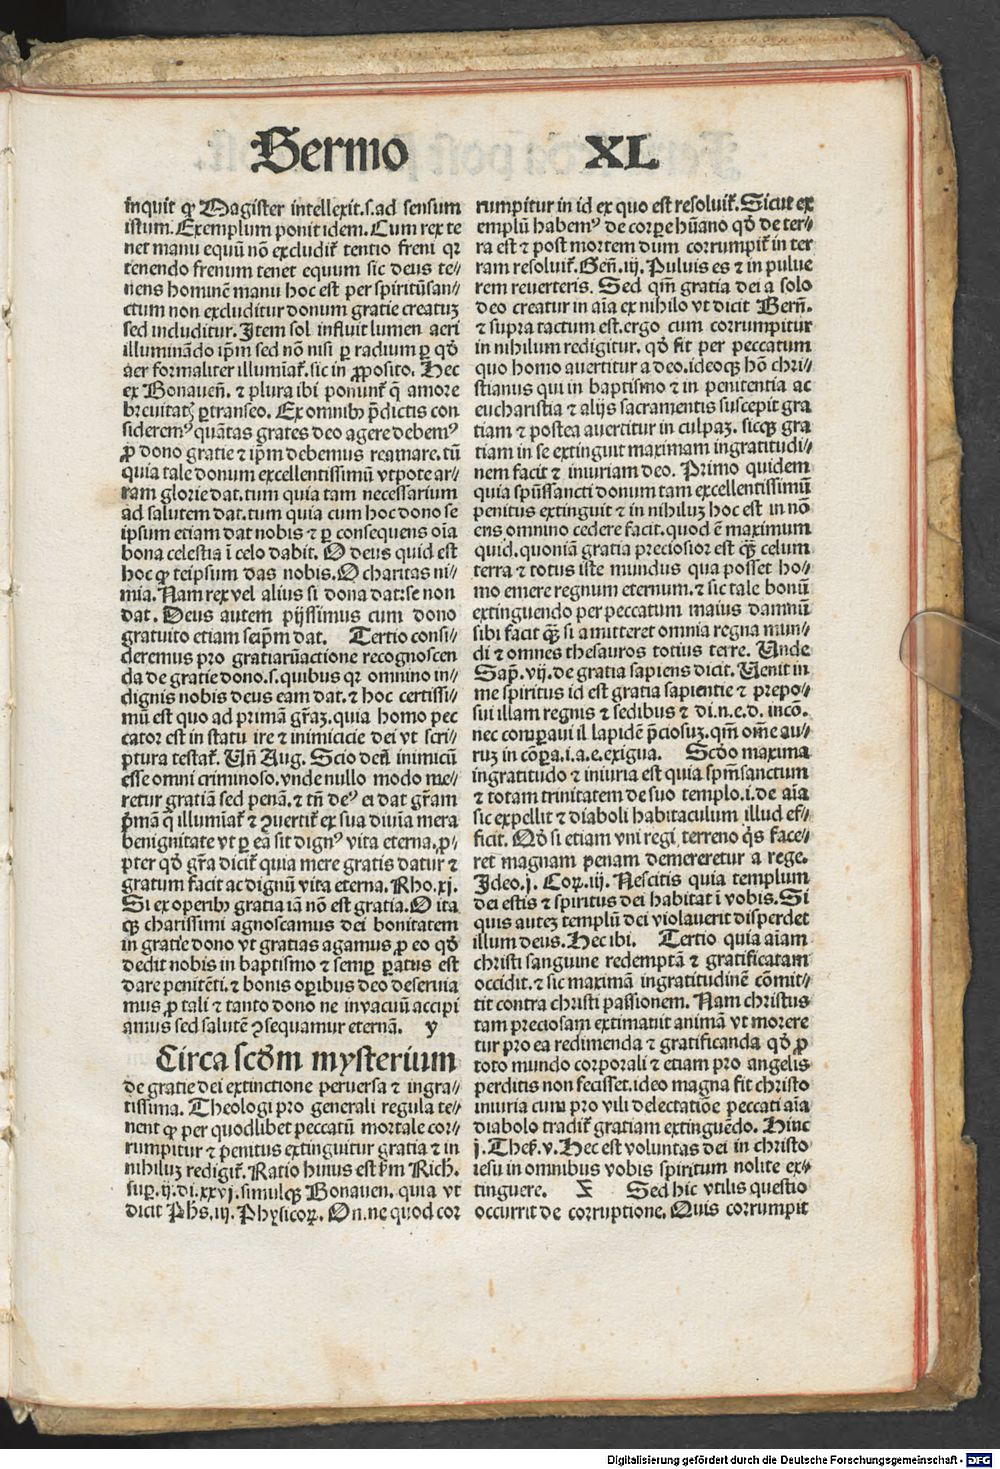 Sermo XL
inquit ꝙ Magister intellexit.s.ad sensum
istum. Exemplum ponit idem. Cum rex te
net manu equū nō excludit̃ tentio freni qꝛ
tenendo frenum tenet equum sic deus te⸗
nens hominē manu hoc est per spiritūsan⸗
ctum non excluditur donum gratie creatuꝫ
sed includitur. Item sol influit lumen aeri
illuminādo ip̄m sed nō nisi ꝑ radium ꝑ qđ
aer formaliter illumiāt̃. sic in ꝓposito. Hec
ex Bonauen̄. ⁊ plura ibi ponunt̃ q̄ amore
breuitatꝭ ꝑtranseo. Ex omnibꝰ p̄dictis con
sideremꝰ quātas grates deo agere debemꝰ
ꝓ dono gratie ⁊ ip̄m debemus reamare. tū
quia tale donum excellentissimū vtpote ar⸗
ram glorie dat. tum quia tam necessarium
ad salutem dat. tum quia cum hoc dono se
ipsum etiam dat nobis ⁊ ꝑ consequens oīa
bona celestia ī celo dabit. O deus quid est
hoc ꝙ teipsum das nobis. O charitas ni⸗
mia. Nam rex vel alius si dona dat: se non
dat. Deus autem pijssimus cum dono
gratuito etiam seip̄m dat. Tertio consi⸗
deremus pro gratiarūactione recognoscen
da de gratie dono.s. quibus qꝛ omnino in⸗
dignis nobis deus eam dat. ⁊ hoc certissi⸗
mū est quo ad primā gr̄aꝫ. quia homo pec
cator est in statu ire ⁊ inimicicie dei vt scri⸗
ptura testat̃. Vn̄ Aug. Scio deū inimicū
esse omni criminoso. vnde nullo modo me⸗
retur gratiā sed penā. ⁊ tn̄ deꝰ ei dat gr̄am
p̄mā q̄ illumiāt̃ ⁊ ꝯuertit̃ ex sua diuīa mera
benignitate vt ꝑ eā sit dignꝰ vita eterna. ꝓ⸗
pter qđ gr̄a dicit̃ quia mere gratis datur ⁊
gratum facit ac dignū vita eterna. Rho. xj.
Si ex operibꝰ gratia iā nō est gratia. O ita
qꝫ charissimi agnoscamus dei bonitatem
in gratie dono vt gratias agamus ꝓ eo qđ
dedit nobis in baptismo ⁊ semꝑ ꝑatus est
dare penitēti. ⁊ bonis oꝑibus deo deseruia
mus ꝓ tali ⁊ tanto dono ne invacuū accipi
amus sed salutē ꝯsequamur eternā. y
Circa scđm mysterium
de gratie dei extinctione peruersa ⁊ ingra⸗
tissima. Theologi pro generali regula te⸗
nent ꝙ per quodlibet peccatū mortale cor⸗
rumpitur ⁊ penitus extinguitur gratia ⁊ in
nihiluꝫ redigit̃. Ratio huius est s̄m Rich.
suꝑ. ij. di. xxvj. simulqꝫ Bonauen. quia vt
dicit Ph̄s. iij. Physicoꝝ. Om̄e quod cor
rumpitur in id ex quo est resoluit̃. Sicut ex
emplū habemꝰ de corꝑe hūano qđ de ter⸗
ra est ⁊ post mortem dum corrumpit̃ in ter
ram resoluit̃. Gen̄. iij. Puluis es ⁊ in pulue
rem reuerteris. Sed qm̄ gratia dei a solo
deo creatur in aīa ex nihilo vt dicit Bern̄.
⁊ supra tactum est. ergo cum corrumpitur
in nihilum redigitur. qđ fit per peccatum
quo homo auertitur a deo. ideoqꝫ hō chri⸗
stianus qui in baptismo ⁊ in penitentia ac
eucharistia ⁊ alijs sacramentis suscepit gra
tiam ⁊ postea auertitur in culpaꝫ. sicqꝫ gra
tiam in se extinguit maximam ingratitudi⸗
nem facit ⁊ iniuriam deo. Primo quidem
quia spūssancti donum tam excellentissimū
penitus extinguit ⁊ in nihiluꝫ hoc est in nō
ens omnino cedere facit. quod ē maximum
quid. quoniā gratia preciosior est qꝫ celum
terra ⁊ totus iste mundus qua posset ho⸗
mo emere regnum eternum. ⁊ sic tale bonū
extinguendo per peccatum maius damnū
sibi facit qꝫ si amitteret omnia regna mun⸗
di ⁊ omnes thesauros totius terre. Unde
Sap̄. vij. de gratia sapiens dicit. Uenit in
me spiritus id est gratia sapientie ⁊ prepo⸗
sui illam regnis ⁊ sedibus ⁊ di. n. e. d. incō.
nec comparaui il lapidē p̄ciosuꝫ. qm̄ om̄e au⸗
ruꝫ in cōpa. i. a. e. exigua. Scđo maxima
ingratitudo ⁊ iniuria est quia spm̄sanctum
⁊ totam trinitatem de suo templo.i. de aīa
sic expellit ⁊ diaboli habitaculum illud ef⸗
ficit. Qđ si etiam vni regi terreno q̇s face⸗
ret magnam penam demereretur a rege.
Ideo. j. Coꝝ. iij. Nescitis quia templum
dei estis ⁊ spiritus dei habitat ī vobis. Si
quis auteꝫ templū dei violauerit disperdet
illum deus. Hec ibi. Tertio quia aīam
christi sanguine redemptā ⁊ gratificatam
occidit. ⁊ sic maximā ingratitudinē cōmit⸗
tit contra christi passionem. Nam christus
tam preciosam extimauit animā vt morere
tur pro ea redimenda ⁊ gratificanda qđ ꝓ
toto mundo corporali ⁊ etiam pro angelis
perditis non fecisset. ideo magna fit christo
iniuria cum pro vili delectatiōe peccati aīa
diabolo tradit̃ gratiam extinguēdo. Hinc
j. Thes̄. v. Hec est voluntas dei in christo
iesu in omnibus vobis spiritum nolite ex⸗
tinguere. Z Sed hic vtilis questio
occurrit de corruptione. Quis corrumpit
Digitalisierung gefördert durch die Deutsche Forschungsgemeinschaft - DFG